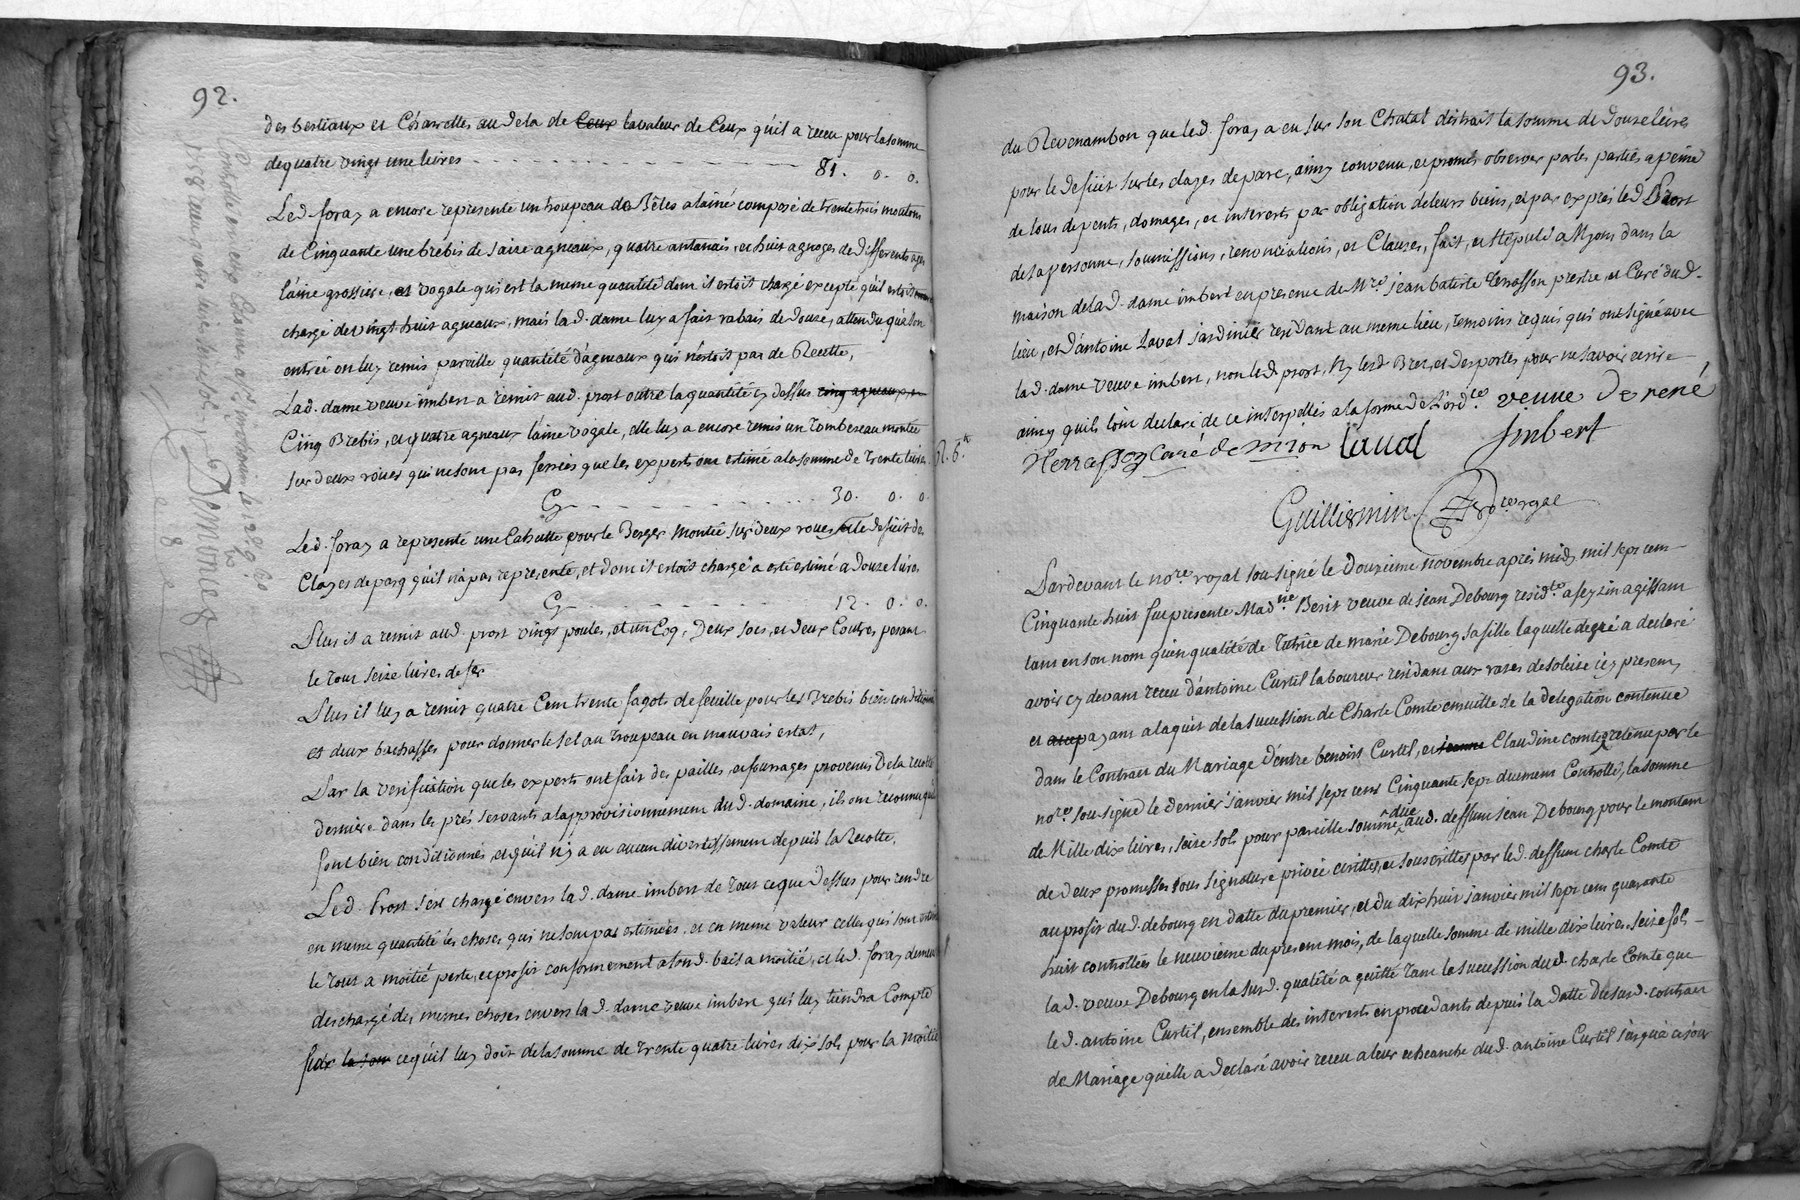 92.
des bestiaux et Charrettes au dela de Ceux la valeur de Ceux qu'il a receu pour la somme
de quatre vingt une livres - - - - - - - - - - - - 81. 0. 0.
Led. foray a encore representé un troupeau de Bêtes a lainé composé de trente trois moutons
de Cinquante une brebis de saire agneaux, quatre antanais, et huit agnoges de differents ages
laine grossiere, et vogale qui est la meme quantité dont il estoit chargé excepté qu'il estoit
chargé de vingt huit agneaux, mais lad. dame luy a fait rabais de douze, attendu qu'a son
entrée on luy remis pareille quantité d'agneaux qui n'estoit pas de Recette,
Lad. dame veuve imbert a remis aud. prost outre la quantité cy dessus cinq agneaux
Cinq Brebis, et quatre agneaux laine vogale, elle luy a encore remis un Tombereau montée
sur deux roues qui ne sont pas ferrées que les experts ont estimé a la somme de Trente livres
Cy - - - - - - - 30. 0. 0.
Led. foray a representé une Cabutte pour le Berger montée sur deux roues et le defficit de
Clayes de parq qu'il n'a pas representé, et dont il estoit chargé a esté estimé a Douze livres
Cy - - - - - - - 12. 0. 0.
Plus il a remit aud. prost vingt poules, et un Coq, Deux socs, et deux Coutres pesant
le tout seize livres de fer
Plus il luy a remit quatre Cent trente fagots de feuille pour les Brebis bien conditionné
et deux bachasses pour donner le sel au troupeau en mauvais estat,
Par la verification que les experts ont fait des pailles, et fourrages provenus De la recolte
derniere dans les prés servants a l'approvisionnement du d. domaine, ils ont reconnu qu'ils
sont bien conditionnés, et qu'il n'y a eu aucun divertissement depuis la Recolte,
Led. Prost s'est chargé envers lad. dame imbert de tout ce que Dessus pour rendre
en meme quantité les choses qui ne sont pas estimées, et en meme valeur celles qui sont estimé
le tout a moitié perte, et profit conformement a sond. bail a moitié, et led. foray demeure
dechargé des mesmes choses envers lad. dame veuve imbert qui luy tiendra Compte
sur la som ce qu'il luy doit de la somme de Trente quatre livres dix sols pour la Moitié
Controlé a
Demornas
93.
du Revenambon que led. foray a eu sur son Chatal distrait la somme de Douze livres
pour le deficit sur les clayes de parc, ainsy convenu, et promis observer par les parties a peine
de tous depents, domages, et interests par obligation de leurs biens, et par exprés led. Prost
de sa personne, soumissions, renonciations, et Clauses, fait, et stipulé a Myons dans la
maison de lad. dame imbert en presence de Mre. jean batiste Terrasson prestre, et Curé dud.
lieu, et d'antoine Laval jardinier residant au meme lieu, temoins requis qui ont signé avec
lad. dame veuve imbert, non led. prost, ny lesd. Brer, et desportes pour ne savoir ecrire
ainsy qu'ils l'ont declaré de ce interpellés a la forme de l'ordce. veuue de rené
Terrasson Curé de mion Laval Jmbert
Guillermin Nore royal
Pardevant le nore. royal sousigné le Douzieme novembre aprés midy mil sept cent
Cinquante huit fut presente Madne. Benit veuve de jean Debourg residte. a feyzin agissant
tant en son nom qu'en qualité de Tutrice de marie Debourg sa fille laquelle degré a declaré
avoir cy devant receu d'antoine Curtil laboureur residant aux razes de Soleise icy present,
et acupa, ant a l'aquit de la succession de Charle Comte ensuitte de la delegation contenue
dans le Contract du Mariage d'entre benoist Curtil, et jeanne Claudine comte retenu par le
nore. sousigné le dernier janvier mil sept cent Cinquante sept duement Controllé, la somme
de Mille dix livres, seize sols pour pareille somme due aud. deffunt jean Debourg pour le montant
de deux promesses sous signature privée ecrittes, et souscrittes par led. deffunt charle Comte
au profit dud. debourg en datte du premier, et du dix huit janvier mil sept cent quarante
huit controllées le neuvieme du present mois, de laquelle somme de mille dix livres, seize sols
lad. veuve Debourg en la susd. qualité a quitté tant la succession dud. charle Comte que
led. antoine Curtil, ensemble des interests en procedants depuis la datte du susd. contract
de Mariage qu'elle a declaré avoir receu a leur echeance dud. antoine Curtil jusque a ce jour